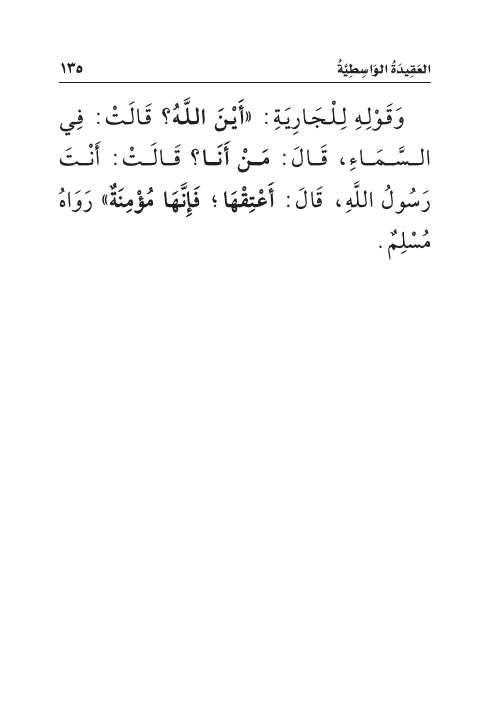 العَقِيدَةُ الوَاسِطِيَّةُ ١٣٥
وَقَوْلِهِ لِلْجَارِيَةِ: «أَيْنَ اللَّهُ؟ قَالَتْ: فِي
السَّمَاءِ، قَالَ: مَنْ أَنَا؟ قَالَتْ: أَنْتَ
رَسُولُ اللَّهِ، قَالَ: أَعْتِقْهَا؛ فَإِنَّهَا مُؤْمِنَةٌ» رَوَاهُ
مُسْلِمٌ.